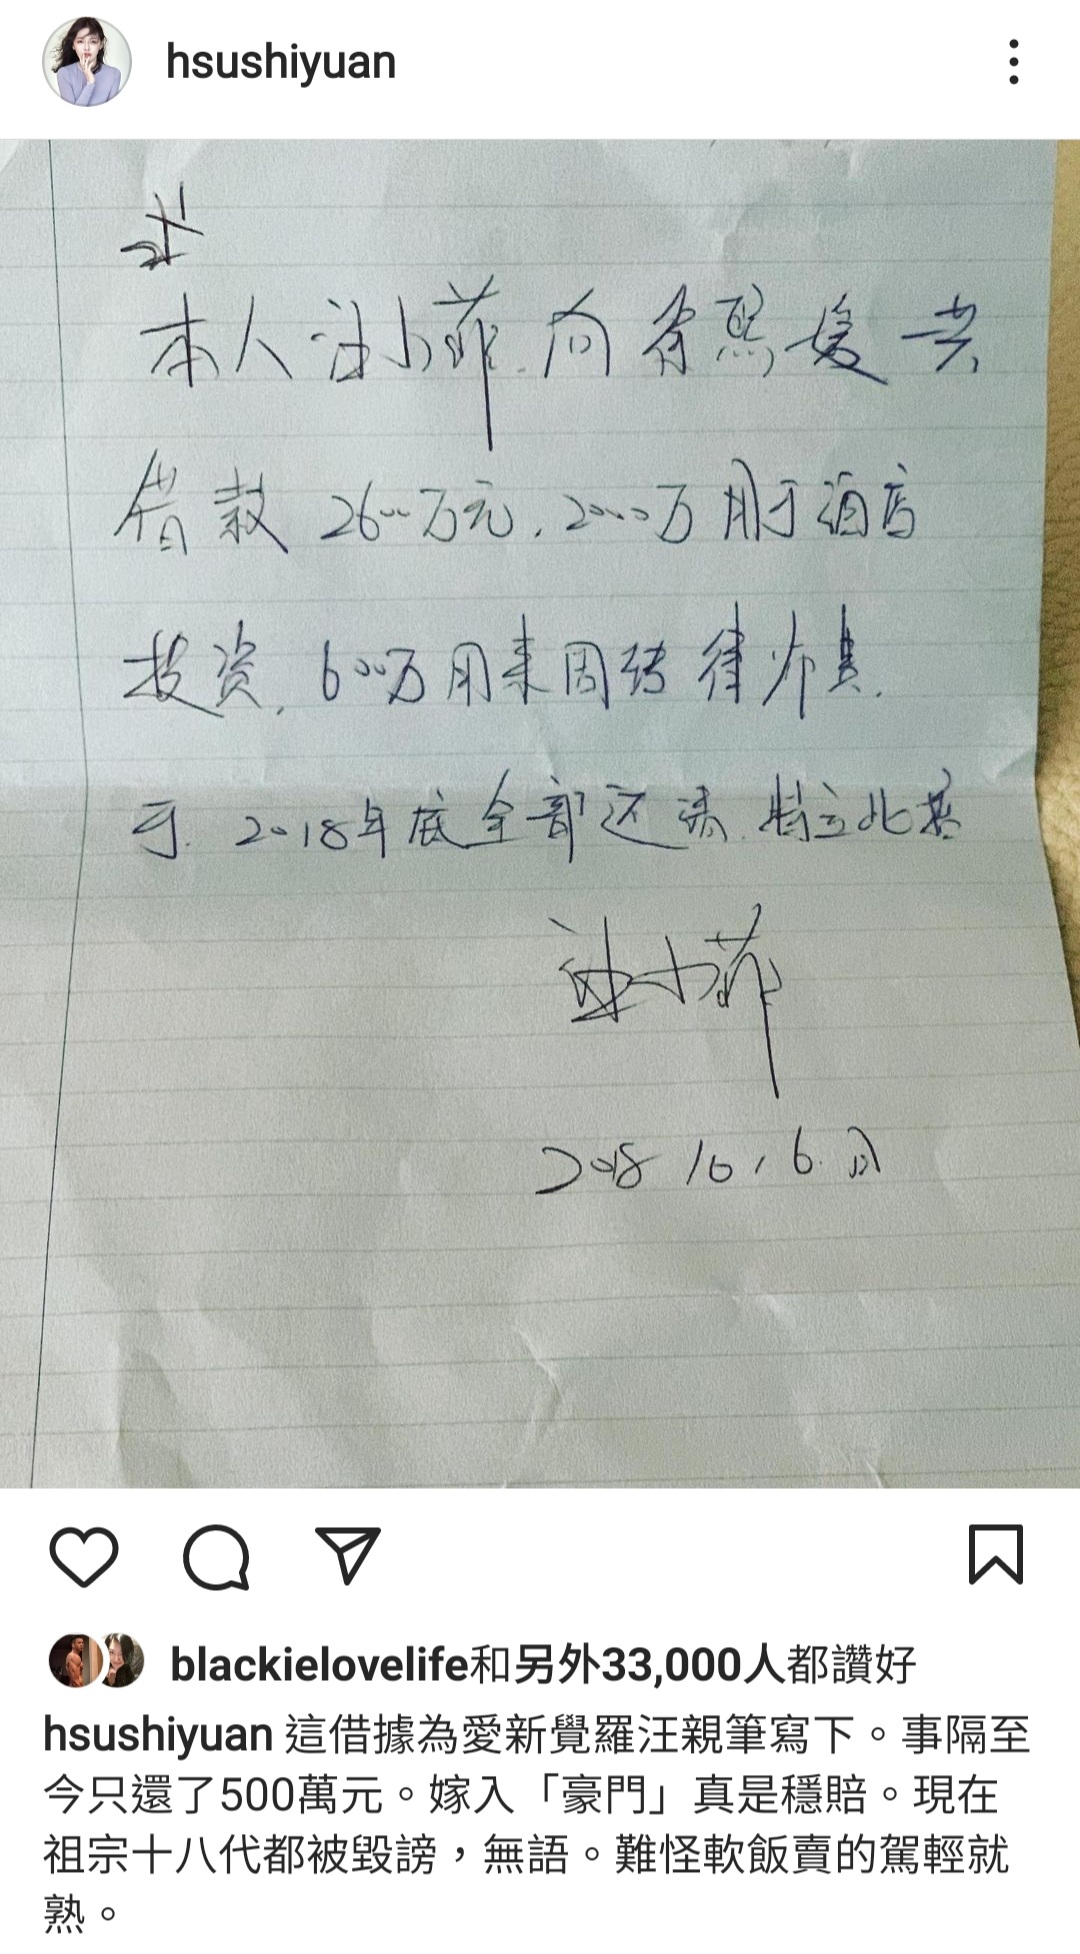 hsushiyuan
本人汪小菲.向徐熙媛共
借款 2600万元,2000万用于酒店
投资,600万用来周转律师费.
于.2018年底全部还清.特立此据
汪小菲
2018 10,6.
blackielovelife和另外33,000人都讚好
hsushiyuan 這借據為愛新覺羅汪親筆寫下。事隔至
今只還了500萬元。嫁入「豪門」真是穩賠。現在
祖宗十八代都被毀謗,無語。難怪軟飯賣的駕輕就
熟。